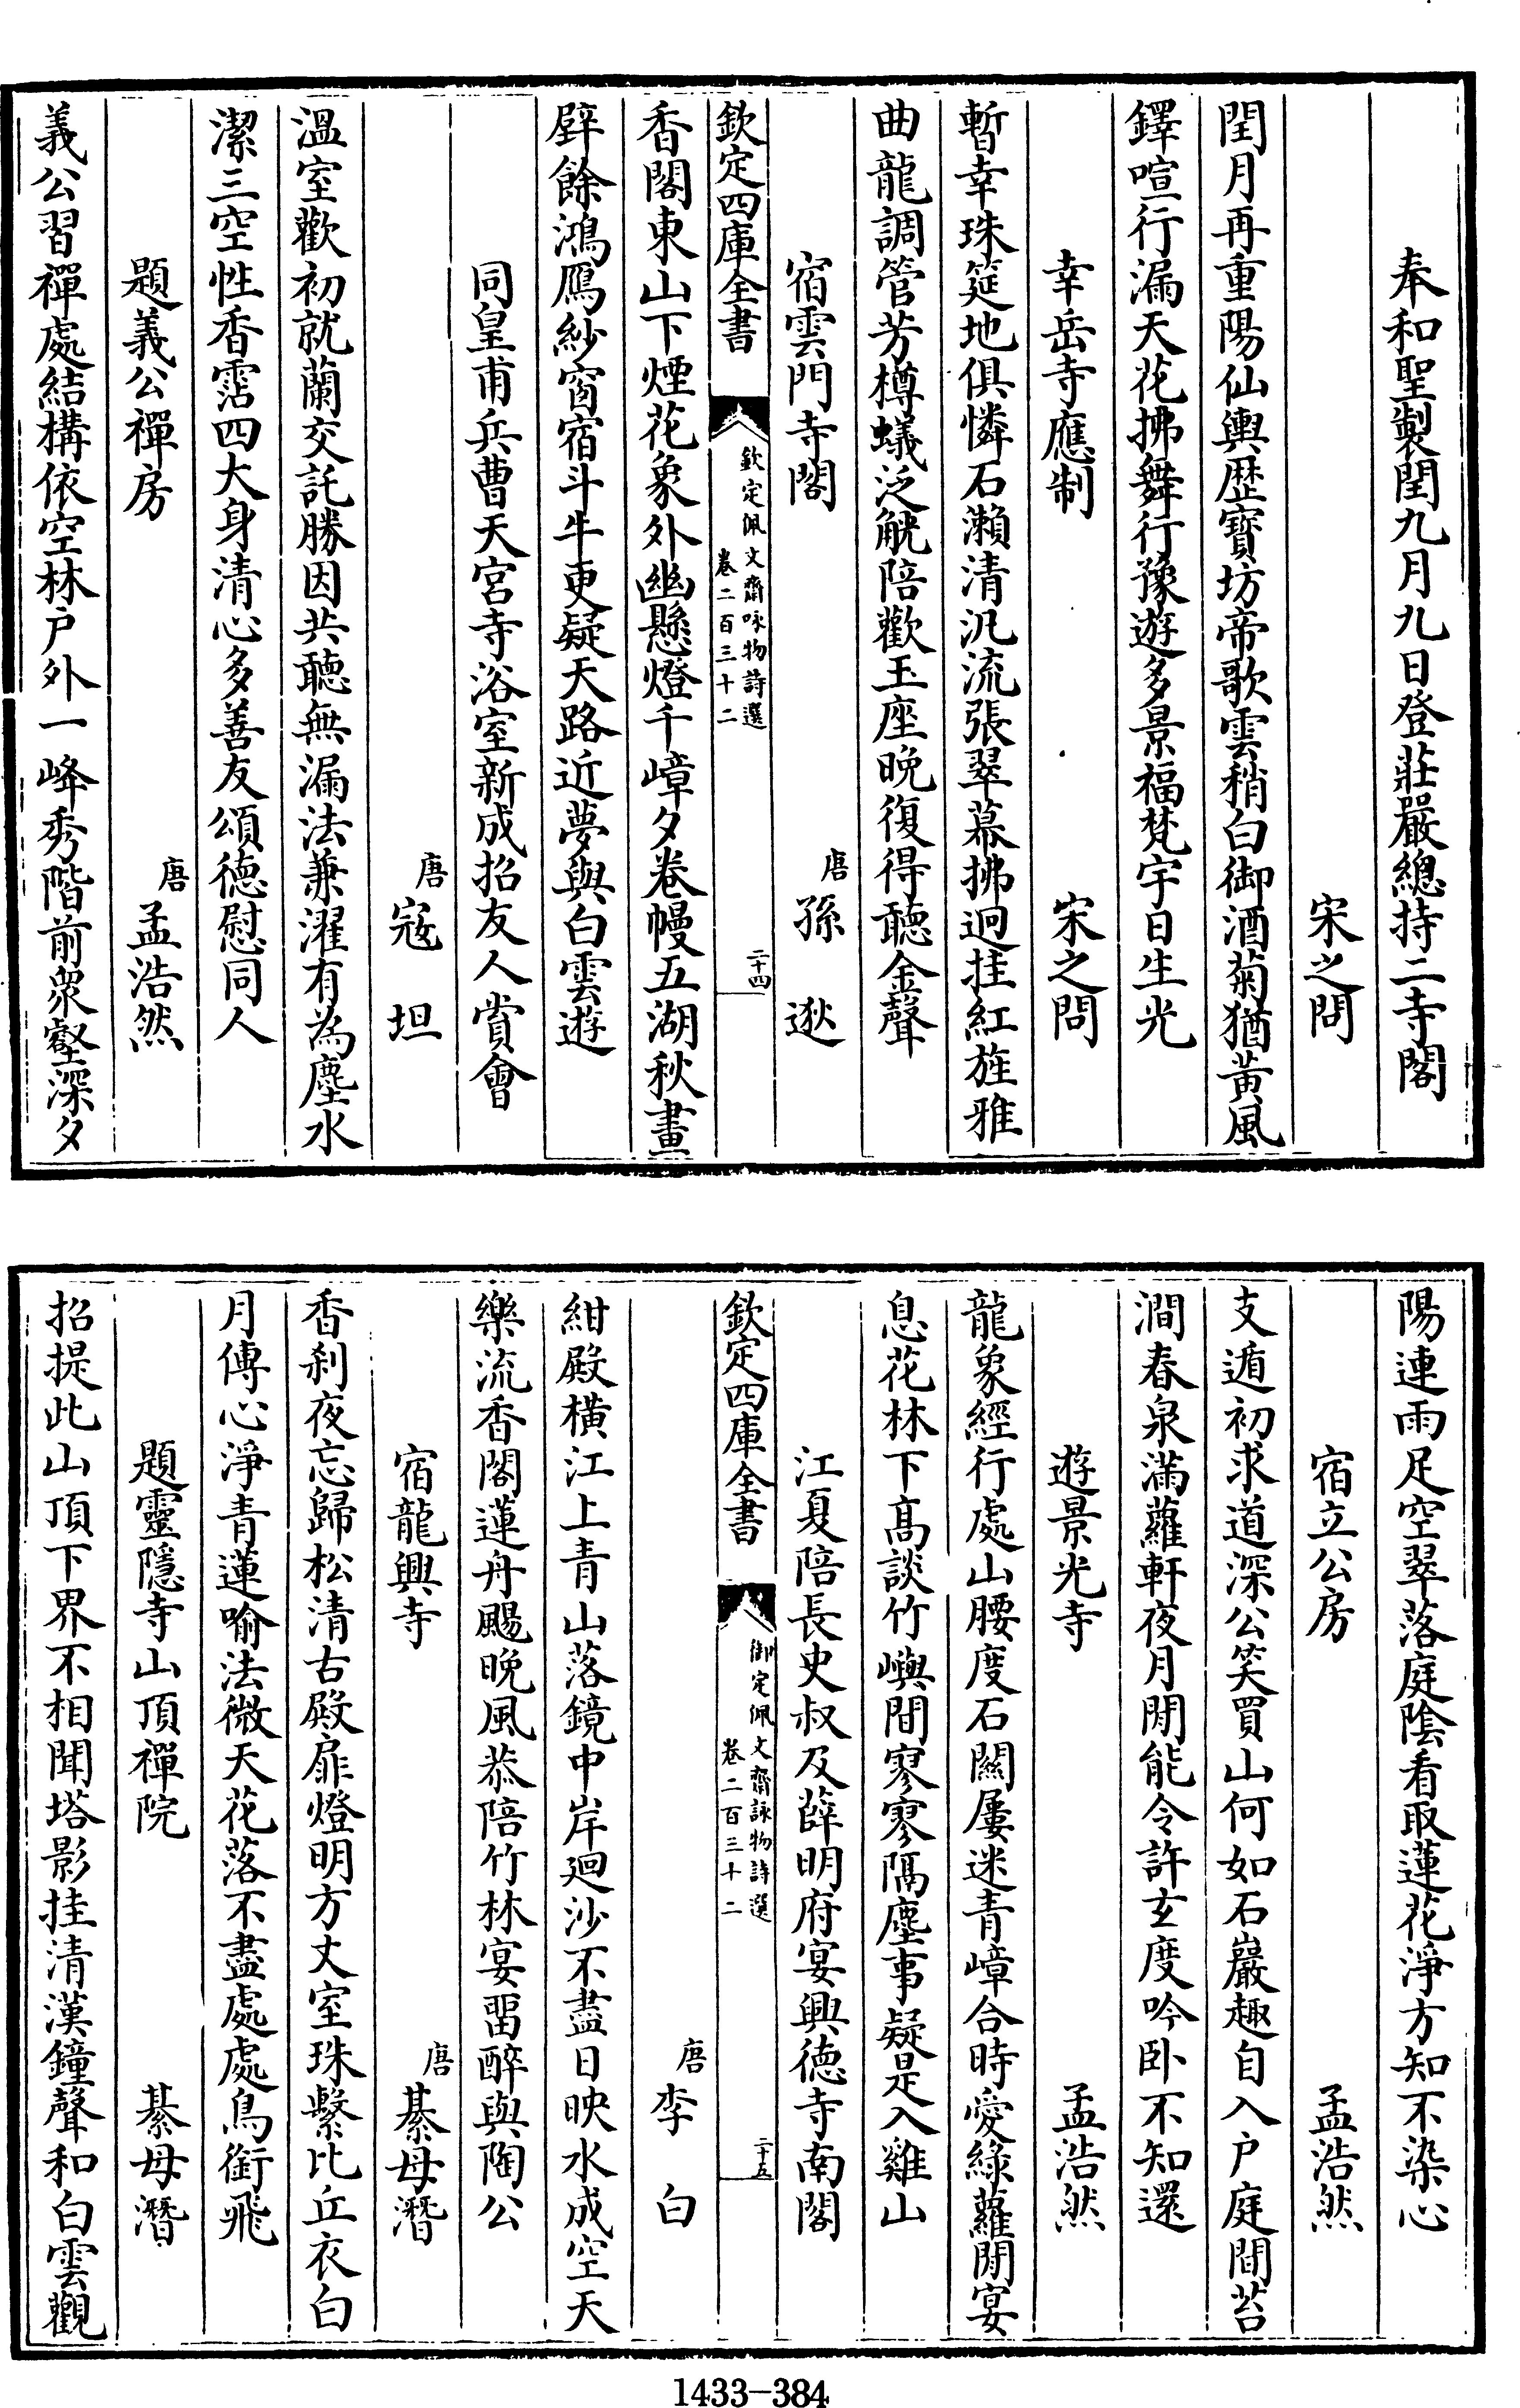 奉和聖製閏九月九日登莊嚴總持二寺閣
宋之問
閏月再重陽仙輿歴寶坊帝歌雲稍白御酒菊猶黃風
鐸喧行漏天花拂舞行豫遊多景福梵宇日生光
幸岳寺應制
宋之問
暫幸珠筵地俱憐石瀨清汎流張翠幕拂迥挂紅旌雅
曲龍調管芳樽蟻泛觥陪歡玉座晩復得聽金聲
宿雲門寺閣
唐 孫逖
欽定四庫全書
欽定佩文齋咏物詩選
卷二百三十二
二十四
香閣東山下煙花象外幽懸燈千嶂夕卷幔五湖秋畫
壁餘鴻鴈紗窗宿斗牛更疑天路近夢與白雲遊
同皇甫兵曹天宮寺浴室新成招友人賞會
唐 寇坦
溫室歡初就蘭交託勝因共聽無漏法兼濯有為塵水
潔三空性香霑四大身清心多善友頌德慰同人
題義公禪房
唐 孟浩然
義公習禪處結構依空林户外一峰秀階前衆壑深夕
陽連雨足空翠落庭陰看取蓮花淨方知不染心
宿立公房
孟浩然
支遁初求道深公笑買山何如石巖趣自入户庭間苔
澗春泉滿蘿軒夜月閒能令許玄度吟卧不知還
遊景光寺
孟浩然
龍象經行處山腰度石關屢迷青嶂合時愛綠蘿閒宴
息花林下髙談竹嶼間寥寥隔塵事疑是入雞山
江夏陪長史叔及薛明府宴興德寺南閣
欽定四庫全書
御定佩文齋詠物詩選
卷二百三十二
二十五
唐 李白
紺殿橫江上青山落鏡中岸廻沙不盡日映水成空天
樂流香閣蓮舟颺晩風恭陪竹林宴畱醉與陶公
宿龍興寺
唐 綦母潛
香刹夜忘歸松清古殿扉燈明方丈室珠繫比丘衣白
月傳心淨青蓮喻法微天花落不盡處處鳥銜飛
題靈隱寺山頂禪院
綦母潛
招提此山頂下界不相聞塔影挂清漢鐘聲和白雲觀
1433-384